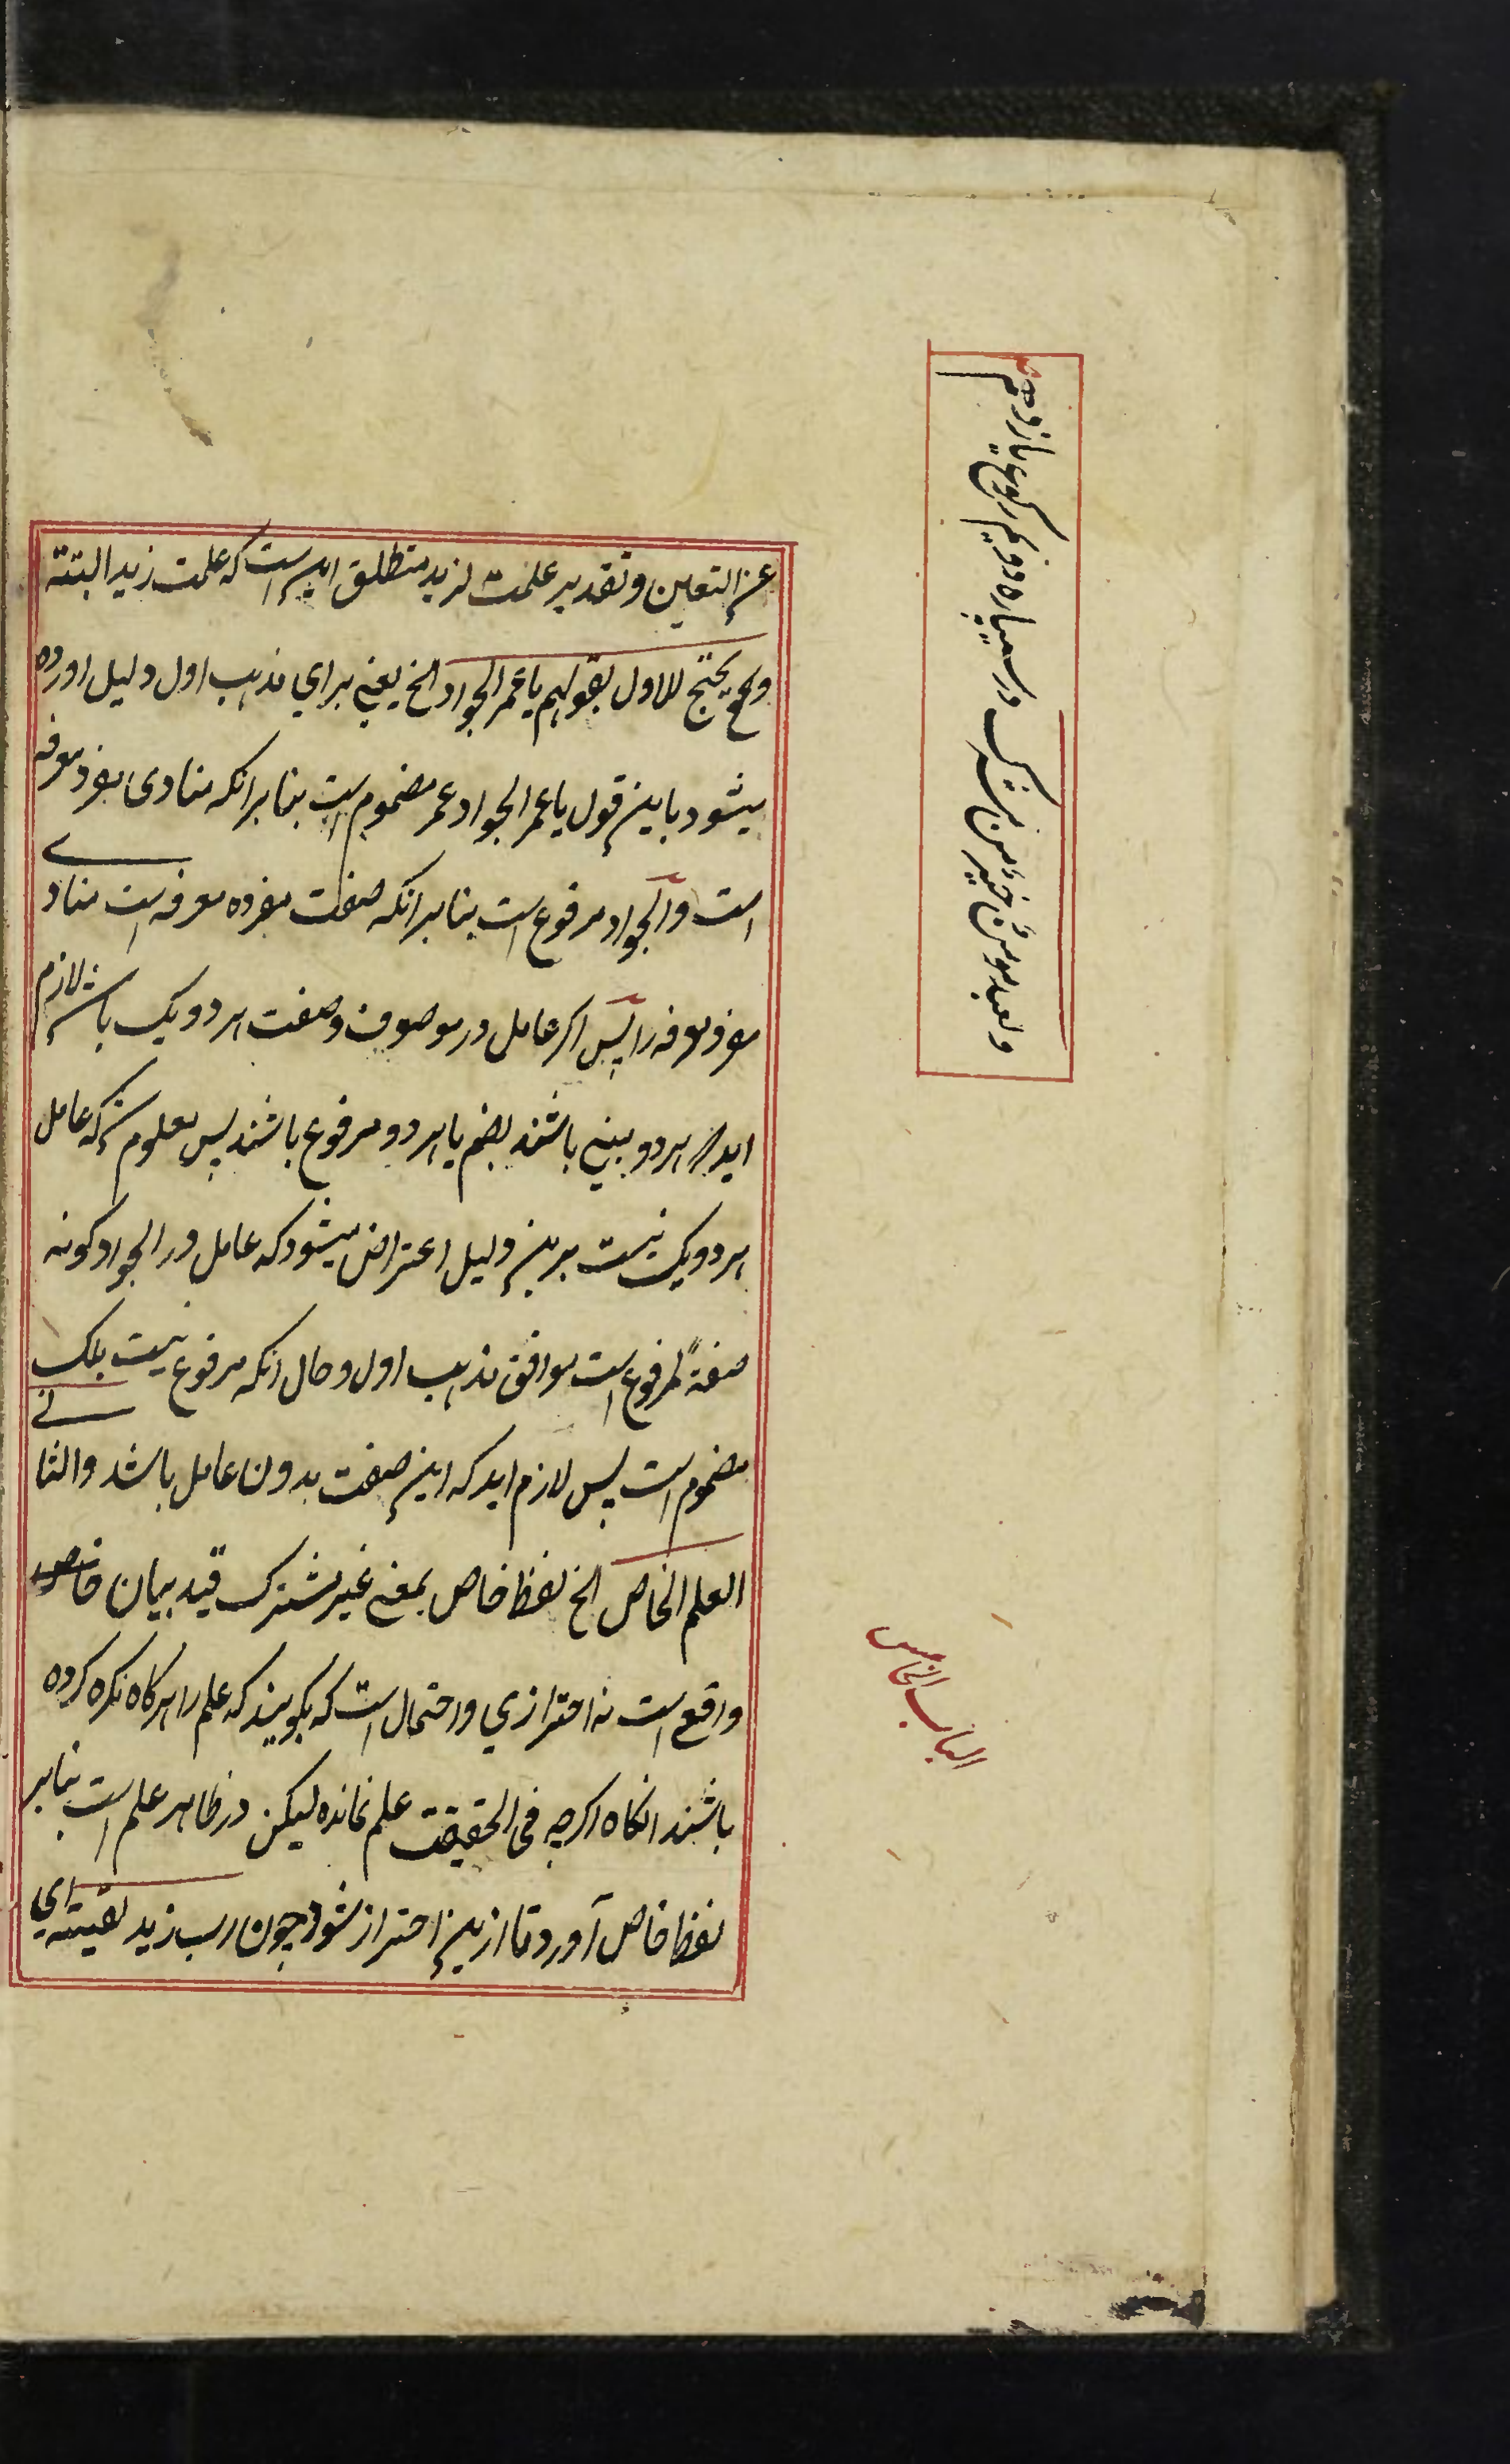 عن التعین وتقدیر علمت لزید منطلق این است که علمت زید البتته
وقح یحتج للاول بقولهم یا عمر الجواد الخ یعنی برای مذهب اول دلیل اورده
میشود باین قول یا عمر الجواد عمر مضموم است بنابرانکه منادی مفرد معرفه
است والجواد مرفوع است بنابرانکه صفت مفرده معرفه است منادی
مفرد معرفه را پس اکر عامل در موصوف وصفت هر دو یک باشد لازم
اید هر دو مبنی باشند بضم یا هر دو مرفوع باشند پس معلوم شد که عامل
هر دو یک نیست برین دلیل اعتراض میشود که عامل در الجواد کونه
صفة مرفوع است موافق مذهب اول وحال انکه مرفوع نیست بلک
مضموم است پس لازم اید که این صفت بدون عامل باشد والثانی
العلم الخاص الخ لفظ خاص بمعنی غیر مشترک قید بیان خاصه
واقع است نه احترازی واحتمال است که بکویند که علم را هرکاه نکره کرده
باشند انکاه اکرچه فی الحقیقت علم نمانده لیکن در ظاهر علم است بنابر
لفظ خاص آورد تا ازین احتراز شود چون رب زید لقیته ای
ولعبد مومن خیر من مشرک در سیپاره دویم رکوع یازدهم
الباب الخامس